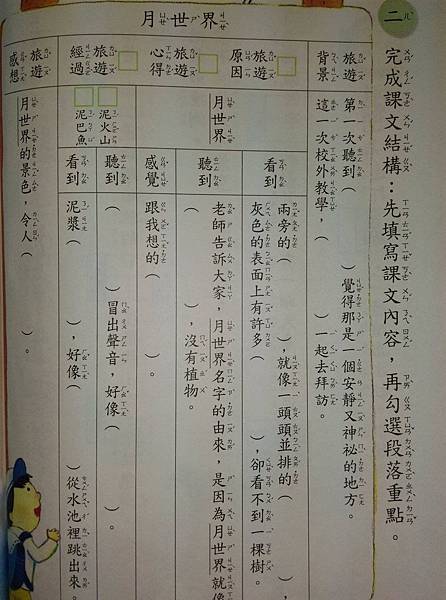 二
完成課文結構：先填寫課文內容，再勾選段落重點。
月世界
旅遊
背景
第一次聽到（　）覺得那是一個安靜又神祕的地方。
這一次校外教學，（　）一起去拜訪。
旅遊
原因
旅遊
心得
旅遊
經過
月世界
看到
兩旁的（　），就像一頭頭並排的（　），
灰色的表面上有許多（　），卻看不到一棵樹。
聽到
老師告訴大家，月世界名字的由來，是因為月世界就像
（　），沒有植物。
感覺
跟我想的（　）。
泥火山
泥巴魚
聽到
（　）冒出聲音，好像（　）。
看到
泥漿（　），好像（　）從水池裡跳出來。
旅遊
感想
月世界的景色，令人（　）。